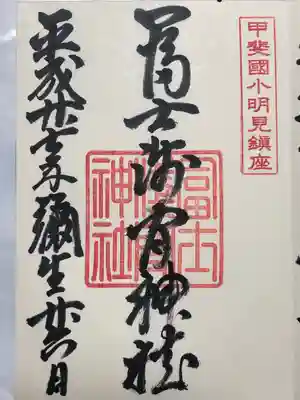 甲斐國小明見鎮座
冨士浅間神社
平成廿七年彌生廿六日
冨士
神社